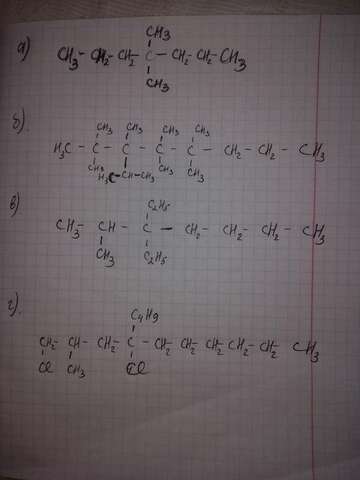 CH3
а) CH3 - CH2 - CH2 - C - CH2 - CH2 - CH3
CH3
б).
CH3 CH3 CH3 CH3
H3C - C - C - C - C - CH2 - CH2 - CH3
CH3 CH3 CH3
H3C - CH - CH3
в)
C2H5
CH3 - CH - C - CH2 - CH2 - CH2 - CH3
CH3 C2H5
г).
C4H9
CH2 - CH - CH2 - C - CH2 - CH2 - CH2 - CH2 - CH2 - CH3
Cl CH3 Cl